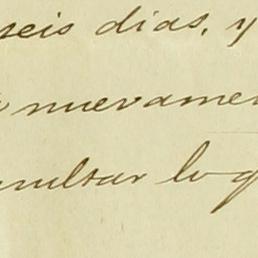 seis dias, y
nuevamen
sultar lo q